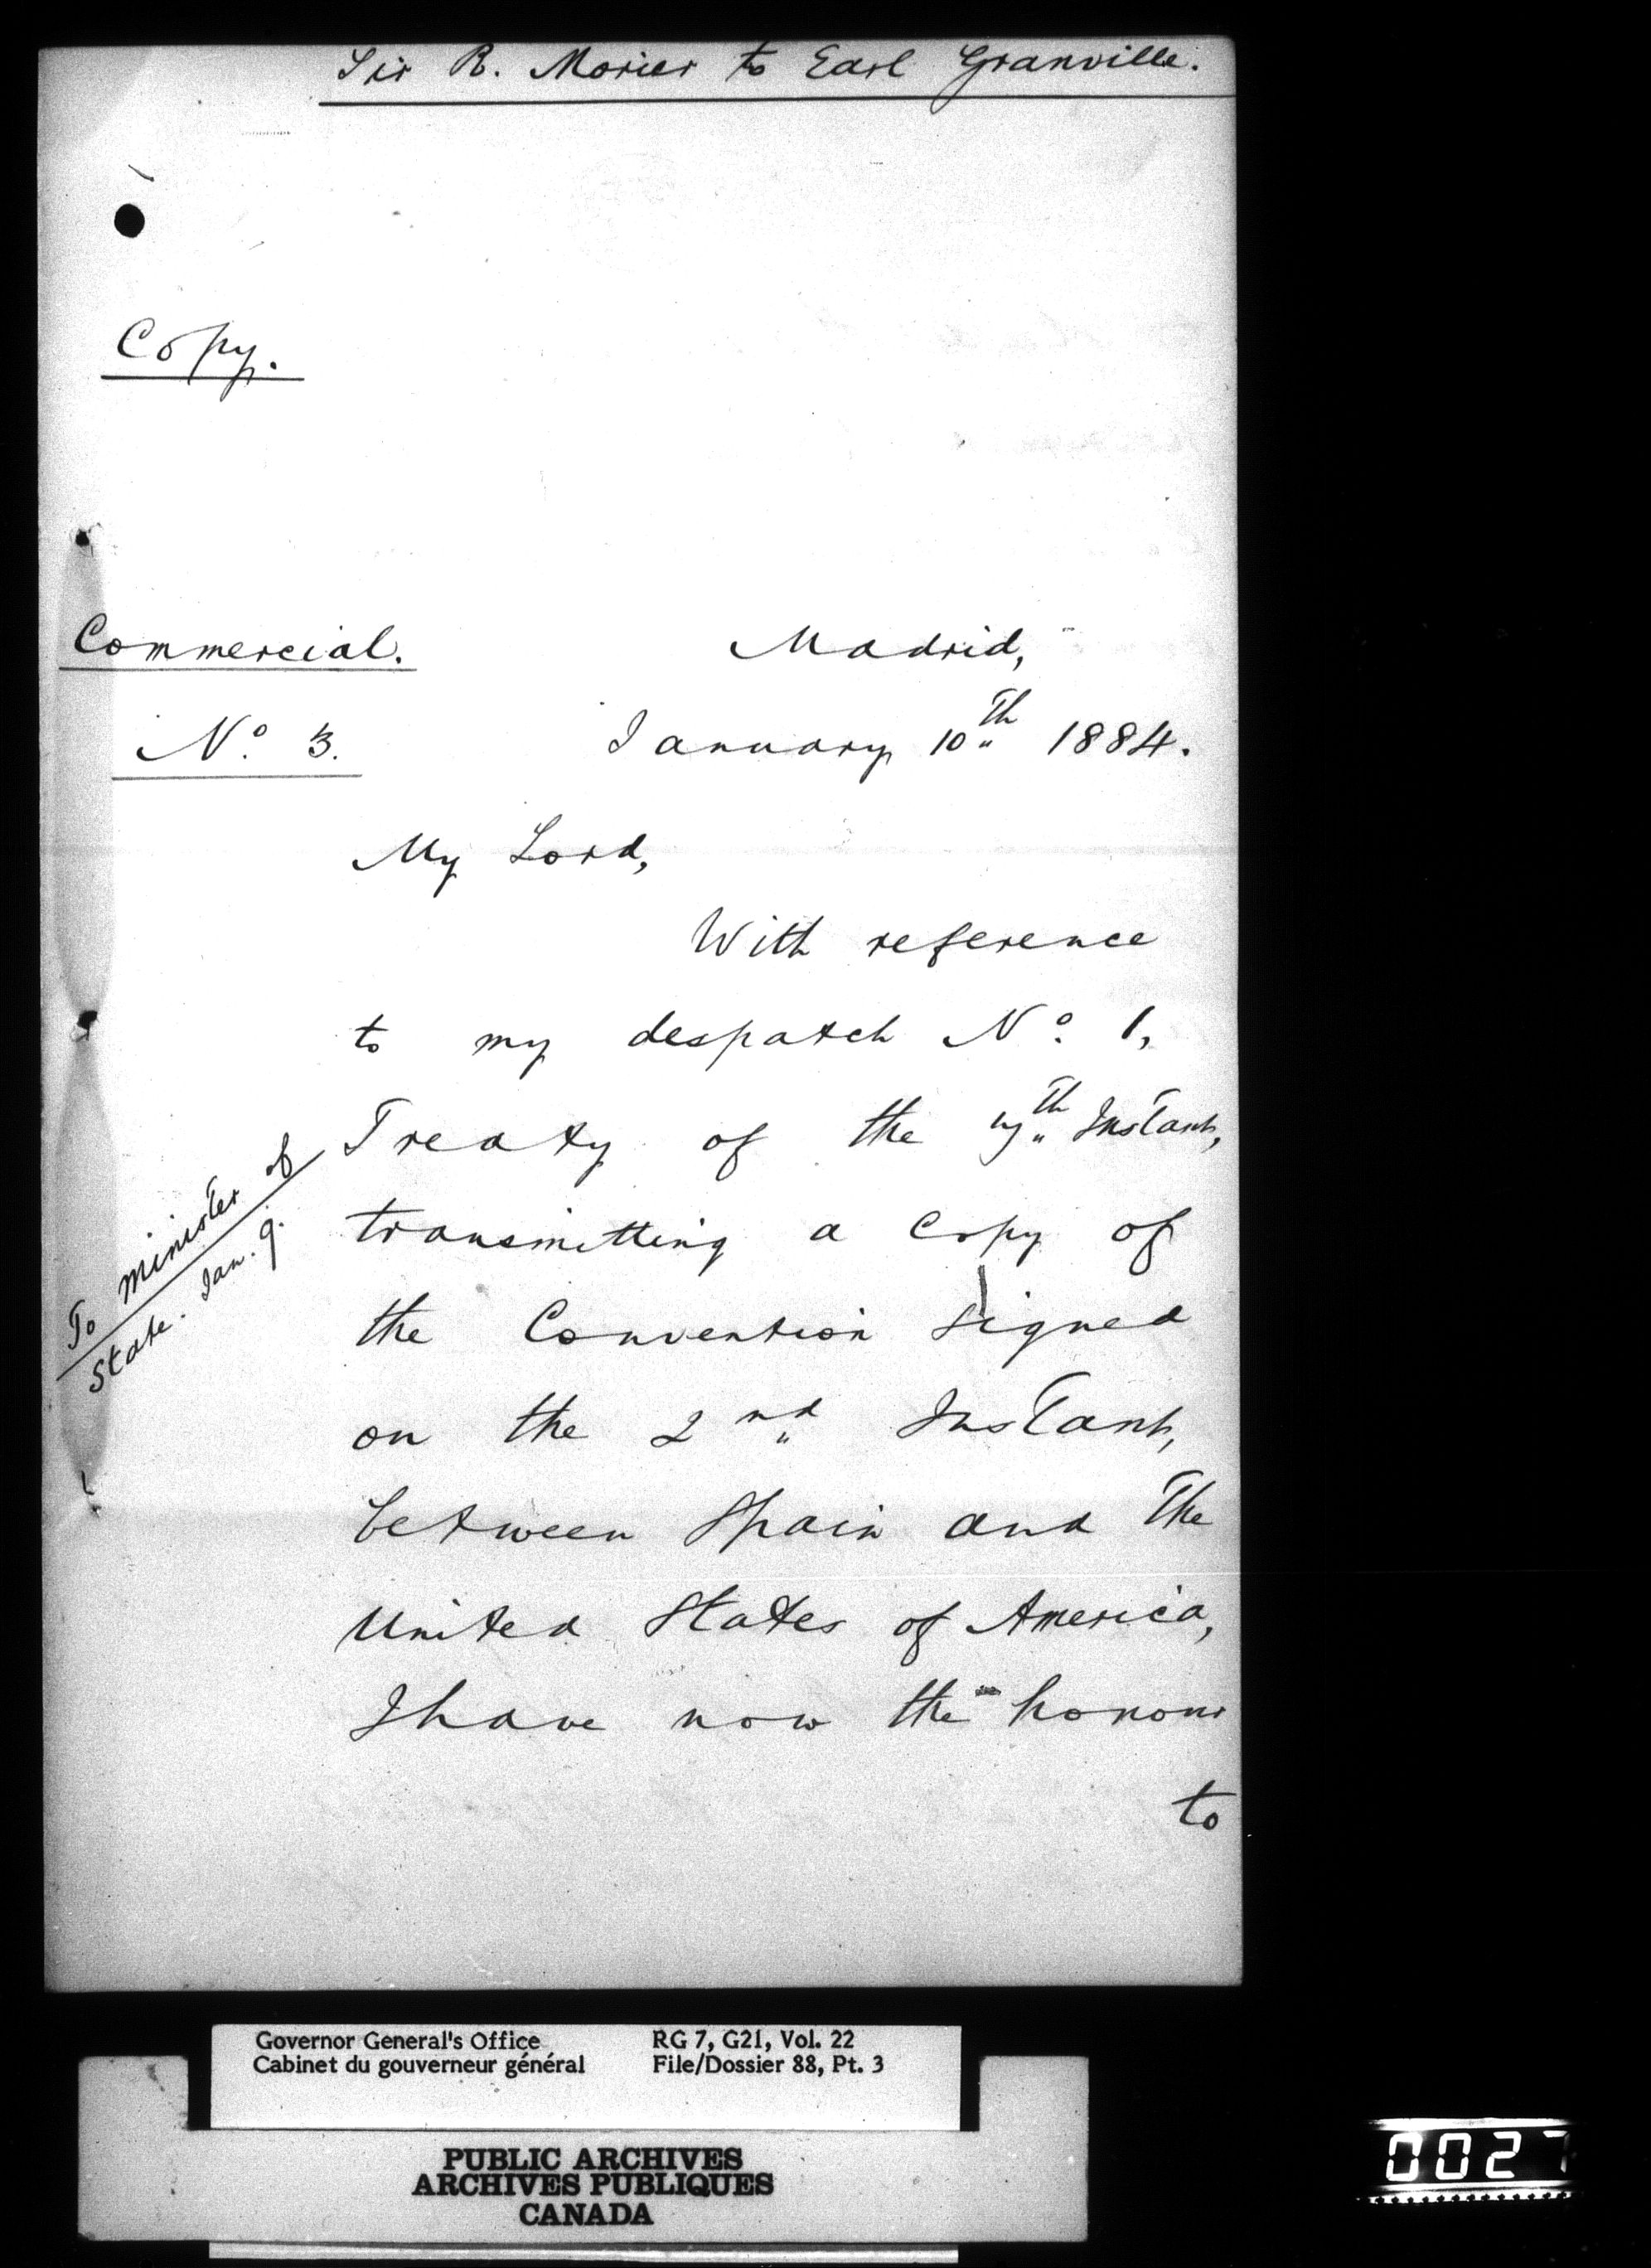 Sir R. Morier to Earl Granville.
Copy.
Commercial.
Madrid,
No. 3.
January 10th 1884.
My Lord,
With reference
to my despatch No. 1,
Treaty of the th Instant,
transmitting a Copy of
the Convention signed
on the 2nd Instant,
between Spain and The
United States of America,
I have now the honour
to
To Minister of
State. Jan. 9.
Governor General's Office
Cabinet du gouverneur général
RG 7, G21, Vol. 22
File/Dossier 88, Pt. 3
PUBLIC ARCHIVES
ARCHIVES PUBLIQUES
CANADA
0027